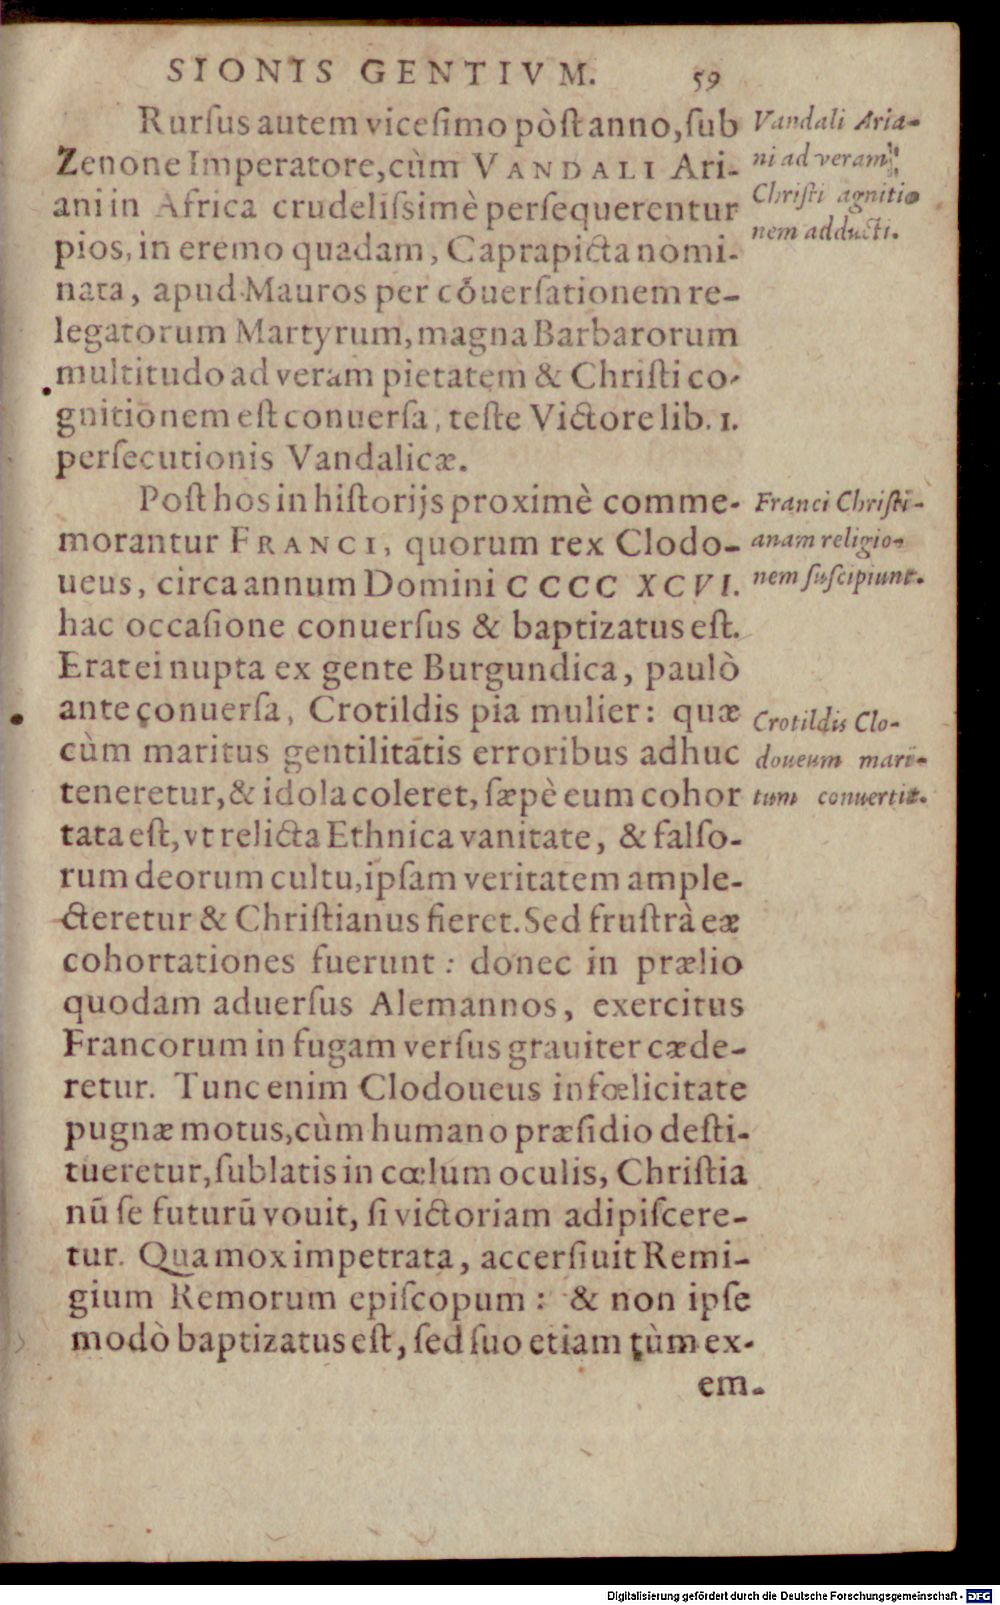 SIONIS GENTIVM. 59
Rurſus autem viceſimo pòſt anno, ſub
Zenone Imperatore, cùm VANDALI Ari-
ani in Africa crudeliſsimè perſequerentur
pios, in eremo quadam, Caprapicta nomi-
nata, apud Mauros per cōuerſationem re-
legatorum Martyrum, magna Barbarorum
multitudo ad veram pietatem & Chriſti co-
gnitionem eſt conuerſa, teſte Victore lib. 1.
perſecutionis Vandalicæ.
Vandali Aria-
ni ad veram
Chriſti agnitio
nem adducti.
Poſt hos in hiſtorijs proximè comme-
morantur FRANCI, quorum rex Clodo-
ueus, circa annum Domini CCCC XCVI.
hac occaſione conuerſus & baptizatus eſt.
Erat ei nupta ex gente Burgundica, paulò
ante conuerſa, Crotildis pia mulier: quæ
cùm maritus gentilitatis erroribus adhuc
teneretur, & idola coleret, ſæpè eum cohor
tata eſt, vt relicta Ethnica vanitate, & falſo-
rum deorum cultu, ipſam veritatem ample-
cteretur & Chriſtianus fieret. Sed fruſtrà eæ
cohortationes fuerunt: donec in prælio
quodam aduerſus Alemannos, exercitus
Francorum in fugam verſus grauiter cæde-
retur. Tunc enim Clodoueus infœlicitate
pugnæ motus, cùm humano præſidio deſti-
tueretur, ſublatis in cœlum oculis, Chriſtia
nū ſe futurū vouit, ſi victoriam adipiſcere-
tur. Qua mox impetrata, accerſiuit Remi-
gium Remorum epiſcopum: & non ipſe
modò baptizatus eſt, ſed ſuo etiam tùm ex-
em-
Franci Chriſti-
anam religio-
nem ſuſcipiunt.
Crotildis Clo-
doueum mari-
tum conuertit.
Digitalisierung gefördert durch die Deutsche Forschungsgemeinschaft - DFG